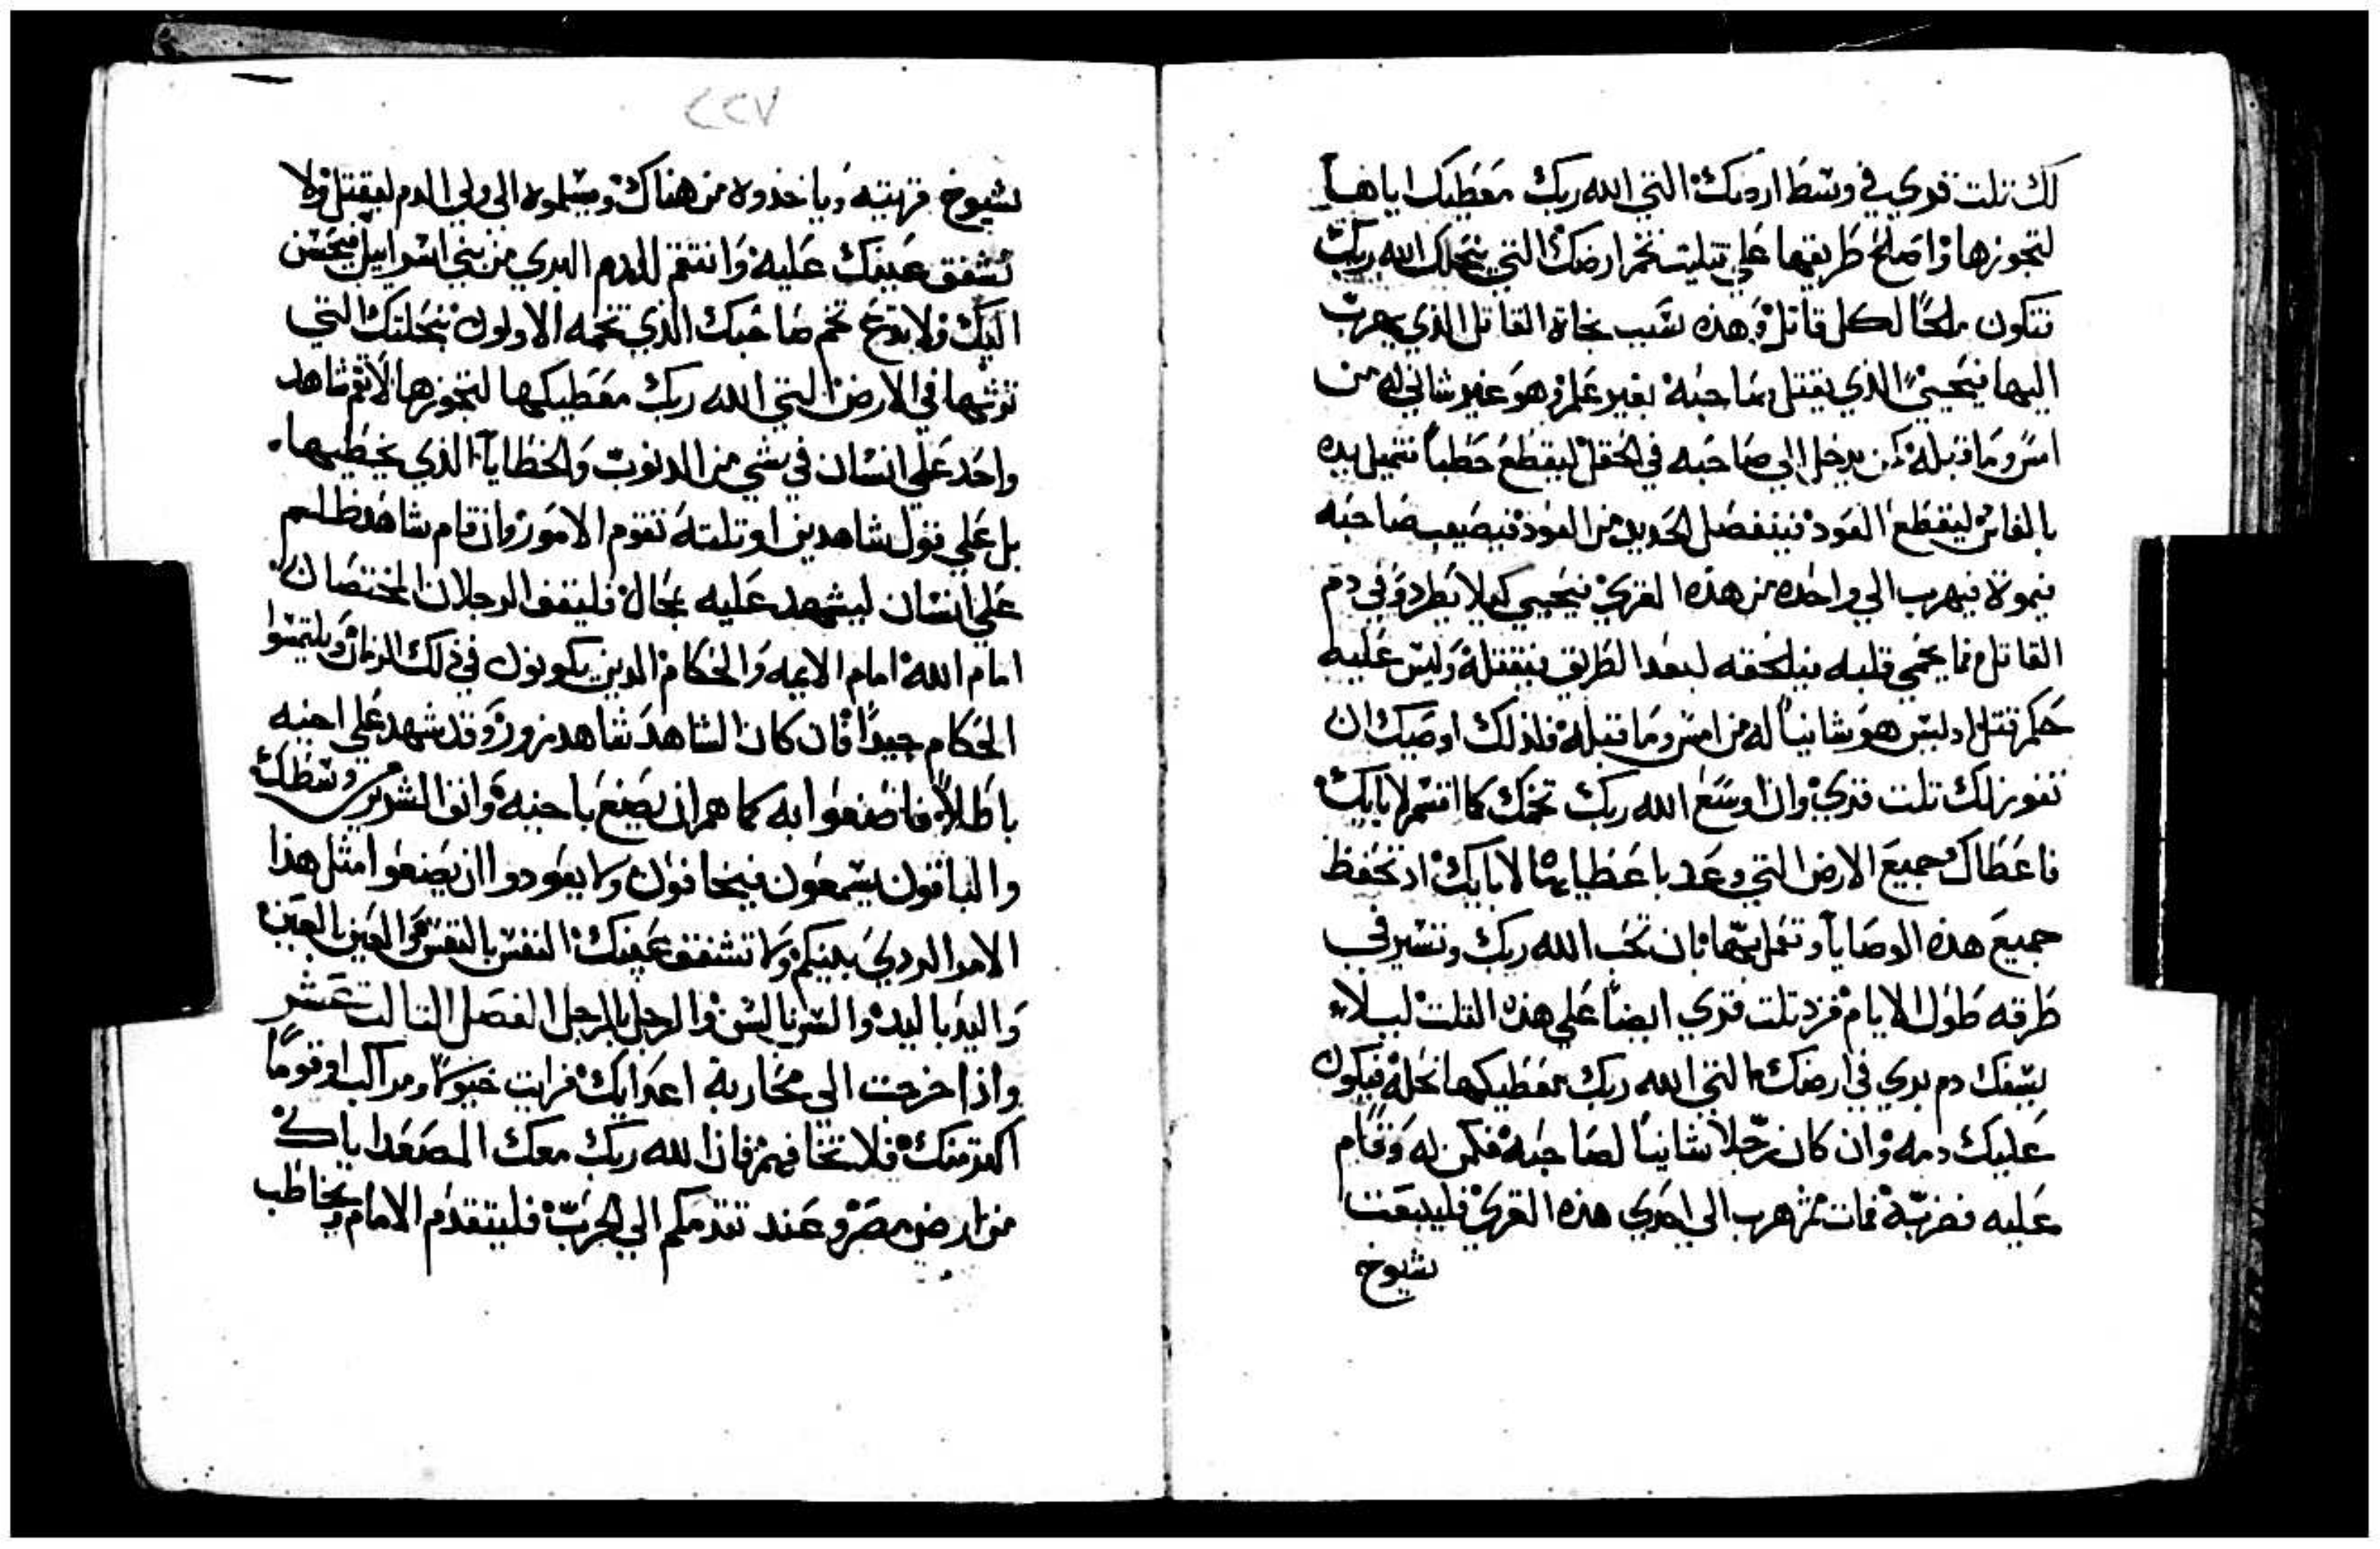 لك تلت قري في وسط ارضك التي الله ربك معطيك اياها
لتجوزها واصلح طريقها علي تتليت تخم ارضك التي ينحلك الله ربك
فتكون ملجا لكل قاتل وهذه سبب نجاة القاتل الذي يهرب
اليها فيحيي الذي يقتل صاحبه بغير علم وهو غير شاني له من
امس وما قبله كمن يدخل الي صاحبه في الحقل ليقطع حطبا فتميل يده
بالفاس ليقطع العود فينفصل الحديد من العود فيصيب صاحبه
فيموة فيهرب الي واحده من هذه القري فيحيي كيلا يطرد وفي دم
القاتل مما يحمي قلبه فيلحقه لبعد الطريق فيقتله وليس عليه
حكم قتل اد ليس هو شانيا له من امس وما قبله فلذلك اوصيك ان
تفوز لك تلت قري وان اوسع الله ربك تخمك كما اقسم لابايك
فاعطاك جميع الارض التي وعد باعطايها لابايك اد تحفظ
جميع هذه الوصايا وتعمل بها بان تحب الله ربك وتسير في
طرقه طول الايام فزد تلت قري ايضا علي هذه التلت ليلا
يسفك دم بري في ارضك التي الله ربك معطيكها نحله فيكون
عليك دمه وان كان رجلا شانيا لصاحبه فكمن له وقام
عليه فضربه فمات ثم هرب الي احدي هذه القري فليبعت
شيوخ
٢٢٧
شيوخ قريته وياخذوه من هناك ويسلموه الي ولي الدم ليقتل ولا
تشفق عينك عليه وانتقم للدم البري من بني اسراييل فيحسن
اليك ولا تدع تخم صاحبك الذي تخمه الاولون بنحلتك التي
ترثها في الارض التي الله ربك معطيكها لتجوزها لا يقم شاهد
واحد علي انسان في شي من الدنوب والخطايا الذي يخطيها
بل علي قول شاهدين او تلته تقوم الامور وان قام شاهد ظلم
علي انسان ليشهد عليه بمحال فليقف الرجلان المختصمان
امام الله امام الايمه والحكام الدين يكونون في ذلك الزمان ويلتمسوا
الحكام جيدا فان كان الشاهد شاهد زور وقد شهد علي اخيه
باطلا فاصنعوا به كما هم ان يصنع باخيه وانف الشر من وسطك
والباقون يسمعون فيخافون ولا يعودوا ان يصنعوا مثل هذا
الامر الردي بينكم ولا تشفق عينك النفس بالنفس والعين بالعين
واليد باليد والسن بالسن والرجل بالرجل الفصل التالت عشر
واذا خرجت الي محاربة اعدايك فرايت خيولا ومراكب وقوما
اكتر منك فلا تخافهم فان الله ربك معك المصعد اياك
من ارض مصر وعند تقدمكم الي الحرب فليتقدم الامام ويخاطب